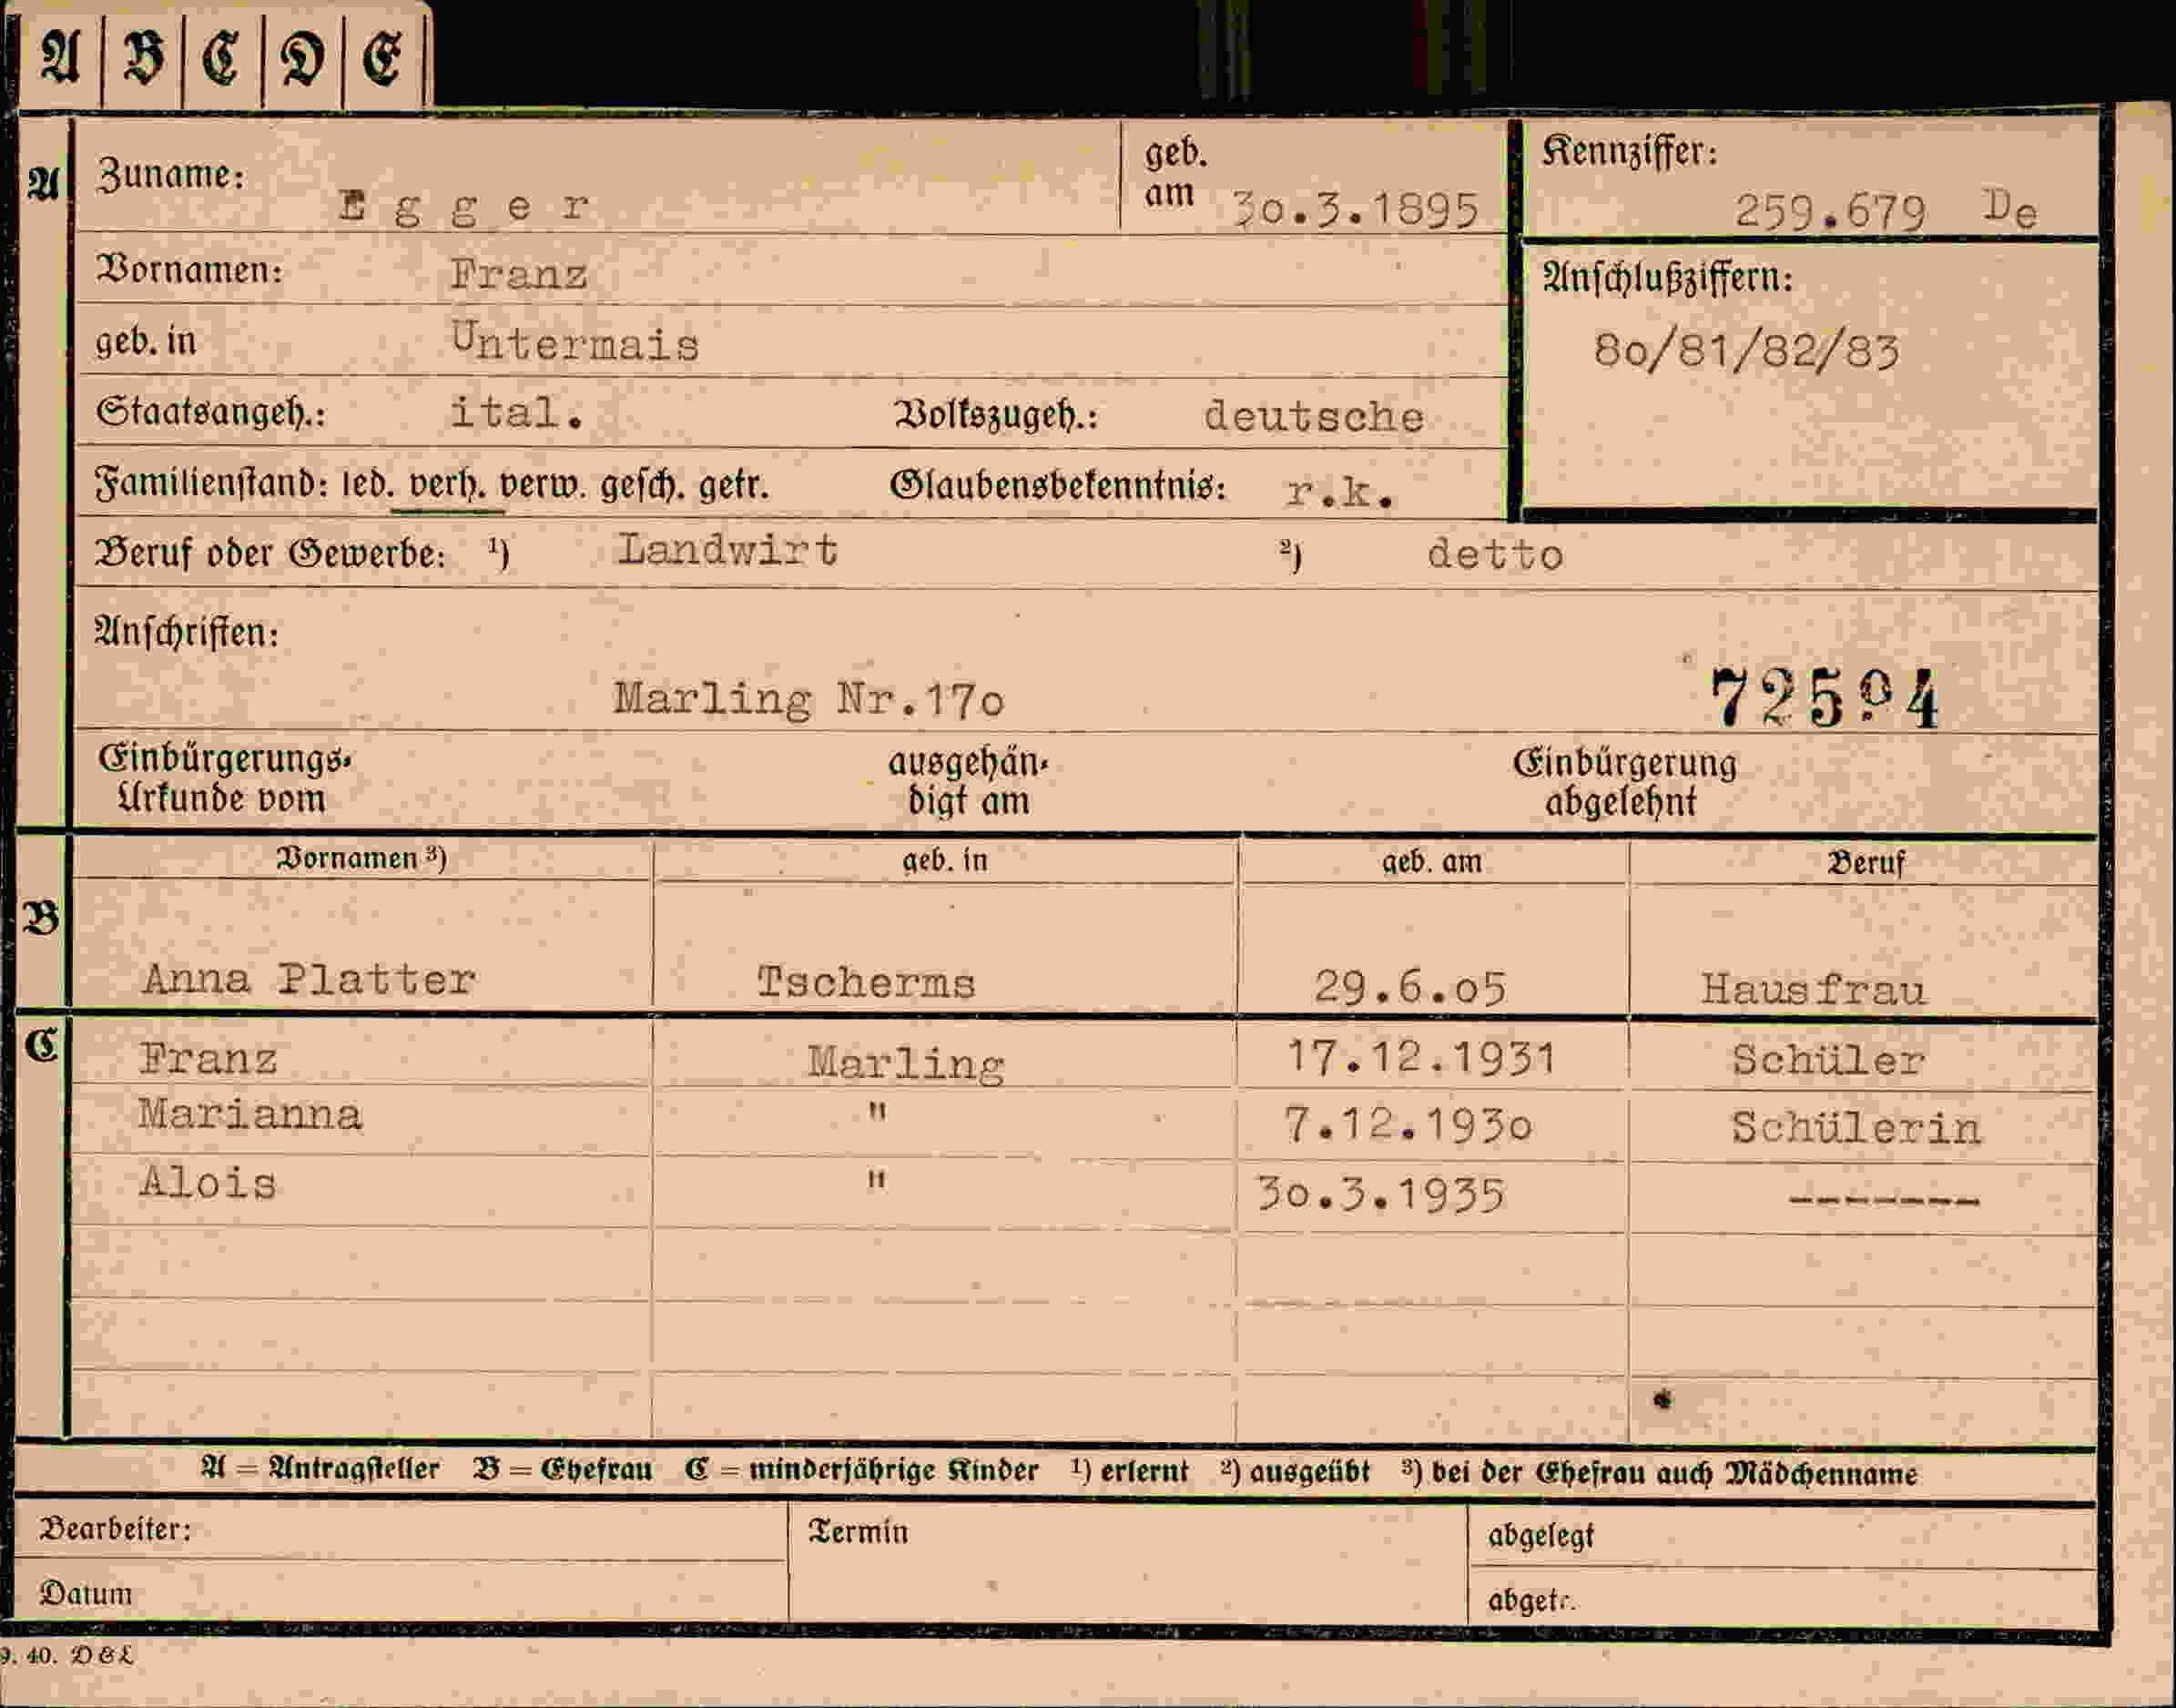 A B C D E
A
Zuname: Egger geb. am 30.3.1895 Kennziffer: 259.679 De
Vornamen: Franz Anschlußziffern:
geb. in Untermais 80/81/82/83
Staatsangeh.: ital. Volkszugeh.: deutsche
Familienstand: led. verh. verw. gesch. getr. Glaubensbekenntnis: r.k.
Beruf oder Gewerbe: ¹) Landwirt ²) detto
Anschriften:
Marling Nr.170 72594
Einbürgerungs- ausgehän- Einbürgerung
Urkunde vom digt am abgelehnt
Vornamen ³) geb. in geb. am Beruf
B
Anna Platter Tscherms 29.6.05 Hausfrau
C
Franz Marling 17.12.1931 Schüler
Marianna " 7.12.1930 Schülerin
Alois " 30.3.1935 -------
A = Antragsteller B = Ehefrau C = minderjährige Kinder ¹) erlernt ²) ausgeübt ³) bei der Ehefrau auch Mädchenname
Bearbeiter: Termin abgelegt
Datum abgetr.
9. 40.